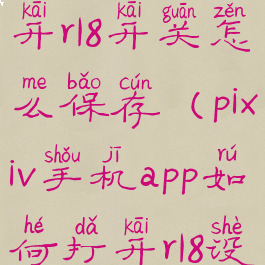 kāi kāi guān zěn
开rl8开关怎
me bǎo cún
么保存（pix
shǒu jī rú
iv手机app如
hé dǎ kāi shè
何打开rl8设